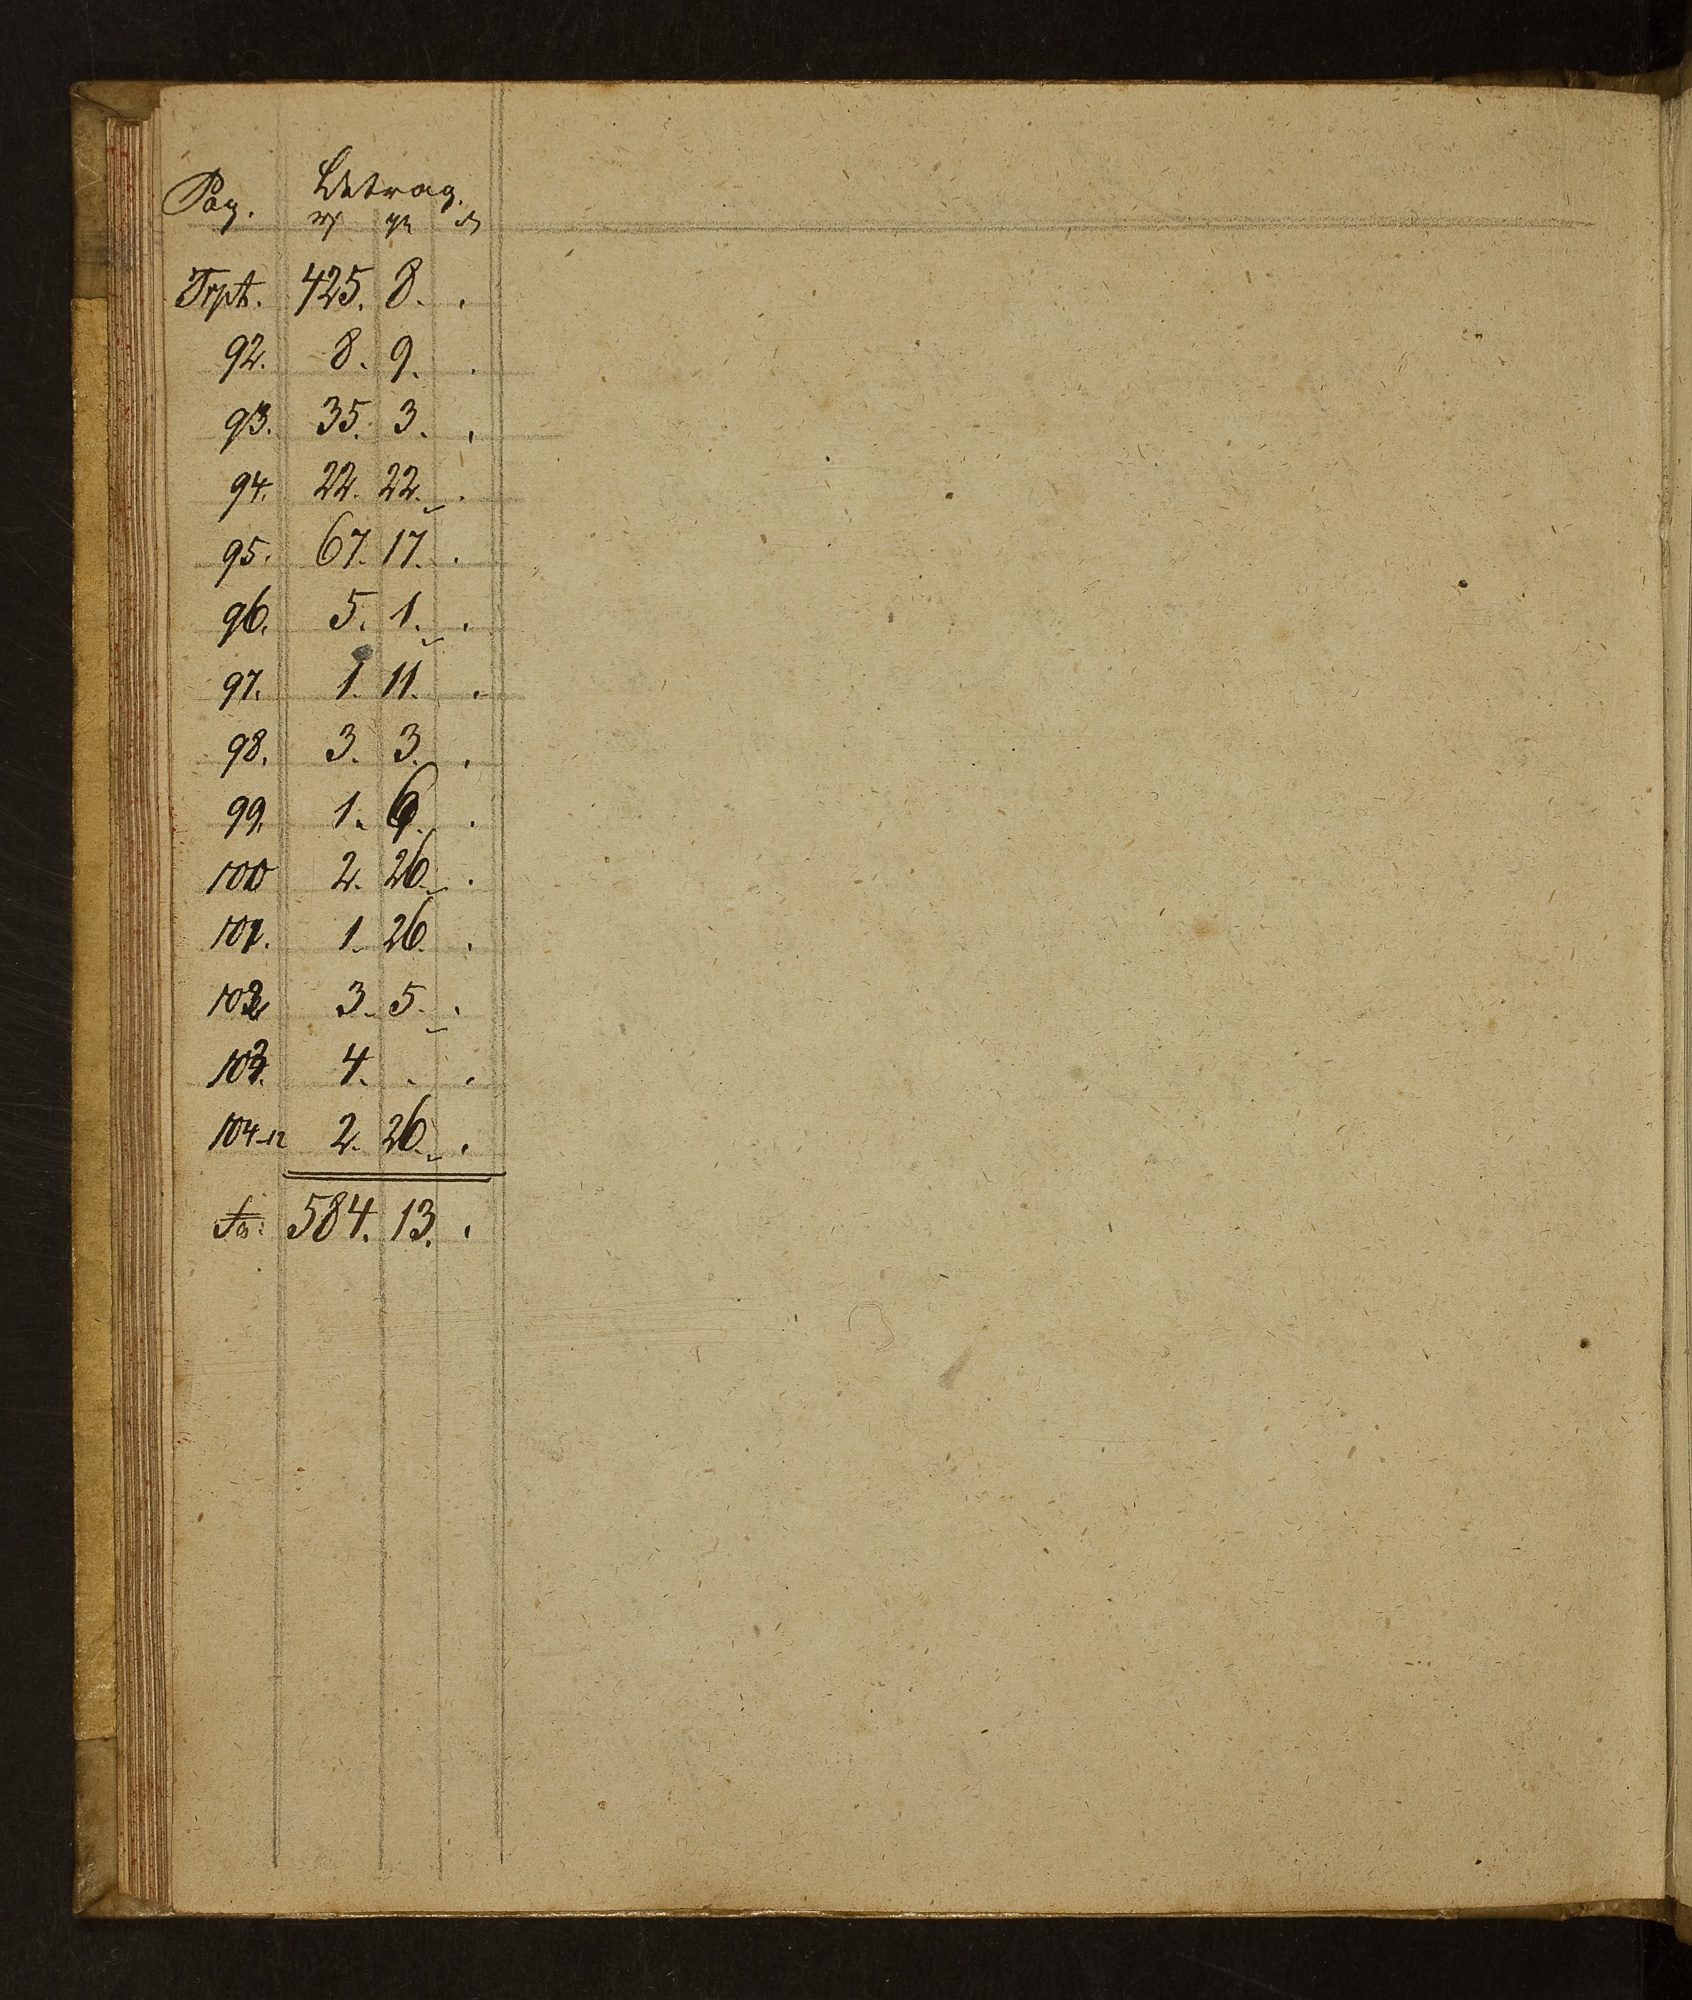 Pag. Betrag.
rℓ gr ₰
Trpt. 425. 8. .
92. 8. 9. .
93. 35. 3. .
94. 22. 22. .
95. 67. 17. .
96. 5. 1. .
97. 1. 11. .
98. 3. 3. .
99. 1. 6. .
100 2. 26. .
101. 1. 26. .
102 3. 5. .
103. 4. . .
104-12 2. 26. .
Sa: 584. 13. .